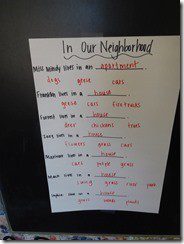 In Our Neighborhood
Miss Mindy lives in an apartment.
dogs geese cars
Franklin lives in a house.
geese cars fire trucks
Forrest lives in a house.
deer chickens trees
lives in a house.
flowers grass cars
lives in a house.
cars people grass
lives in a house.
grass river park
lives in a house.
grass woods plants